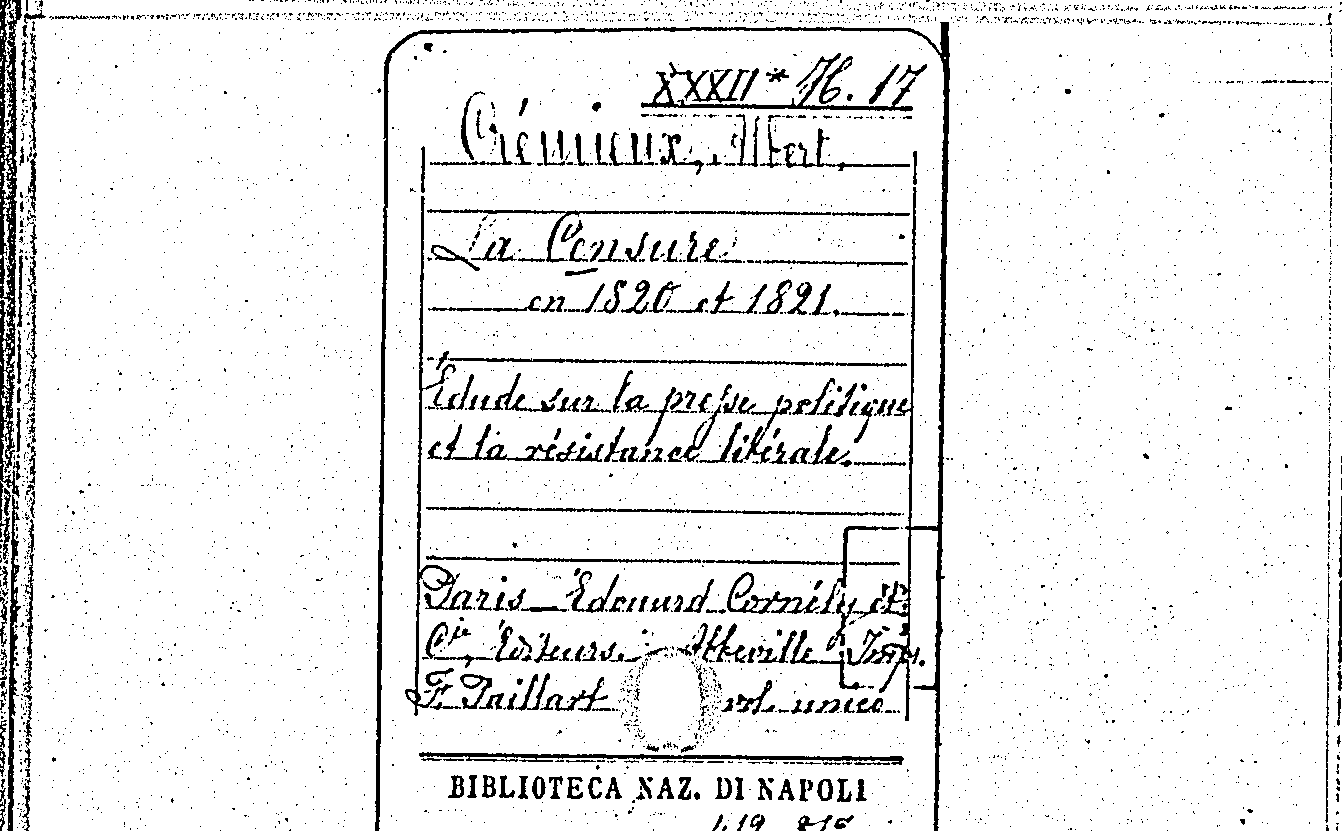 XXXII* H. 17
Crémieux, Albert.
La Censure
en 1820 et 1821.
Édude sur la presse politique
et la résistance libérale.
Paris – Édouard Cornély et
Cie, Éditeurs. – Abbeville Imp.
F. Paillart vol. unico
BIBLIOTECA NAZ. DI NAPOLI